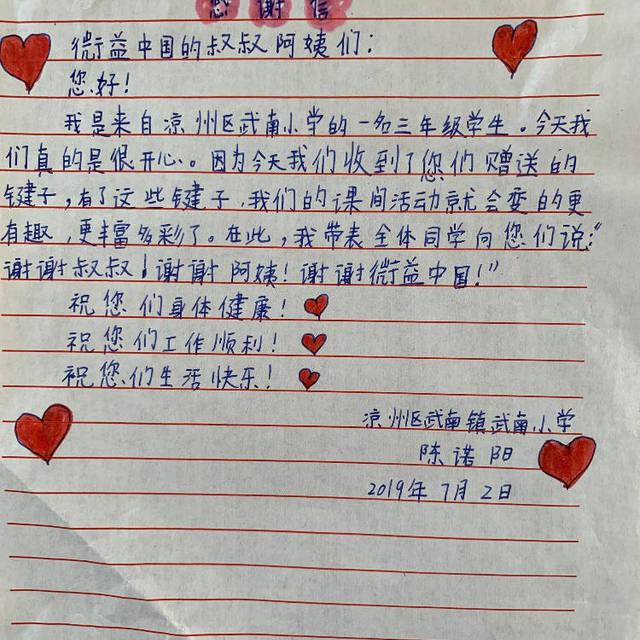 感谢信
微益中国的叔叔阿姨们:
您好!
我是来自凉州区武南小学的一名三年级学生。今天我
们真的是很开心。因为今天我们收到了您们赠送的
键子,有了这些键子,我们的课间活动就会变的更
有趣,更丰富多彩了。在此,我带表全体同学向您们说:“
谢谢叔叔!谢谢阿姨!谢谢微益中国!”
祝您们身体健康!
祝您们工作顺利!
祝您们生活快乐!
凉州区武南镇武南小学
陈诺阳
2019年7月2日